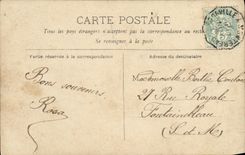 CARTE POSTALE
Tous les pays étrangers n'acceptent pas la correspondance au recto.
Se renseigner à la poste
Partie réservée à la correspondance
Adresse du destinataire
Bons souvenirs
Rosa
Mademoiselle Berthe
27 Rue Royale
Fontainebleau
(S. et M.)